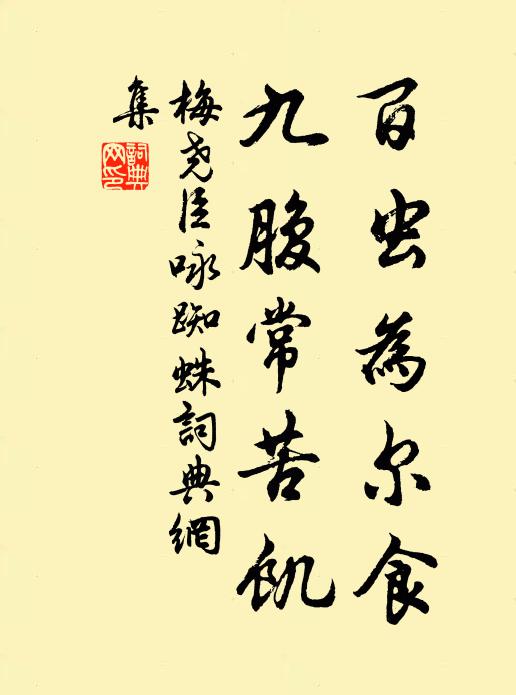 百虫為尔食
九腹常苦飢
梅尧臣咏蜘蛛詞典網
集
詞典
网印